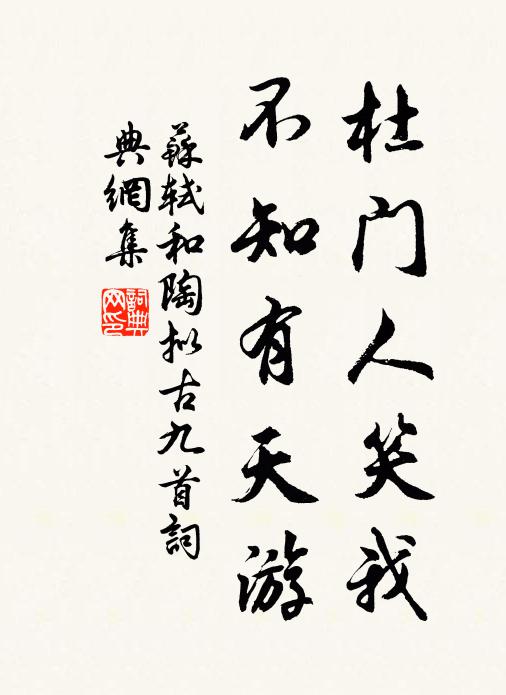 杜门人笑我
不知有天游
蘇軾和陶拟古九首詞
典網集
詞典
网印